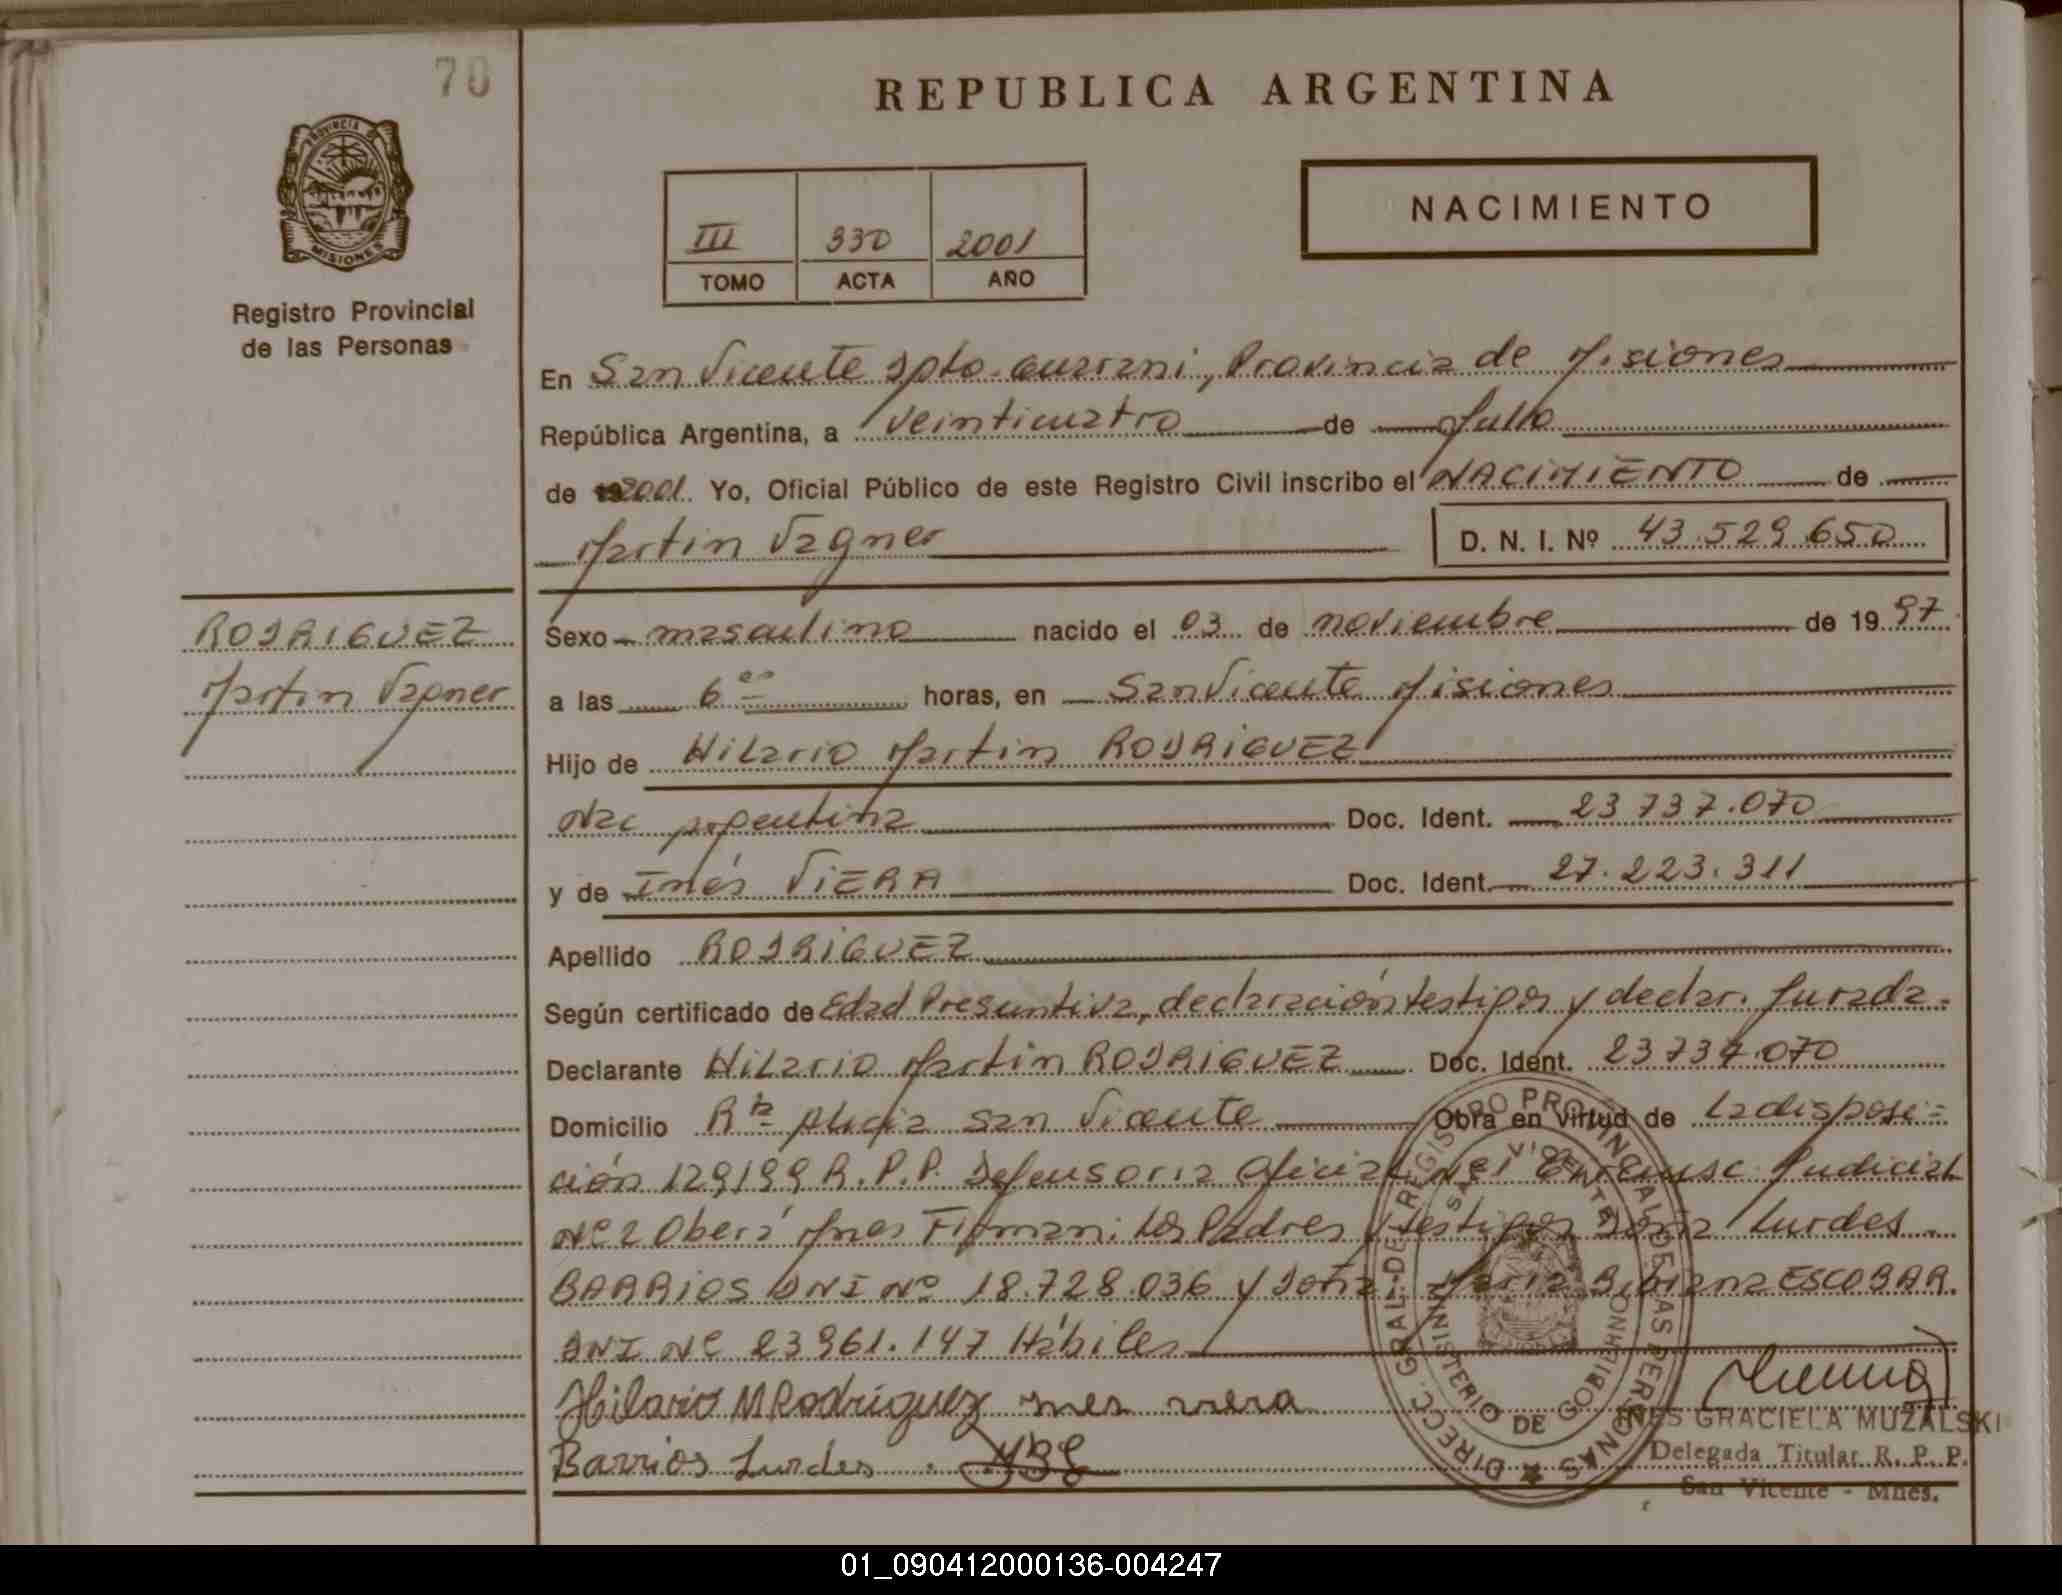 70
REPUBLICA ARGENTINA
PROVINCIA DE MISIONES
Registro Provincial
de las Personas
III 330 2001
TOMO ACTA AÑO
NACIMIENTO
En San Vicente Dpto. Guarani, Provincia de Misiones
República Argentina, a veinticuatro de Julio
de 2001. Yo, Oficial Público de este Registro Civil inscribo el NACIMIENTO de
Martin Vagner D. N. I. Nº 43.529.650
RODRIGUEZ
Martin Vagner
Sexo masculino nacido el 03 de noviembre de 1997
a las 6 00 horas, en San Vicente Misiones
Hijo de Hilario Martin RODRIGUEZ
Nac Argentina Doc. Ident. 23 737.070
y de Inés ViERA Doc. Ident. 27.223.311
Apellido RODRIGUEZ
Según certificado de Edad Presuntiva, declaración testigos y declar. Jurada.
Declarante Hilario Martin RODRIGUEZ Doc. Ident. 23737.070
Domicilio San Vicente Obra en virtud de la disposi=
ción 129/99 R.P.P. Defensoria Oficial Judicial
Nº 2 Oberá Mnes Firman: los Padres y testigos Doña Lurdes
BARRIOS DNI Nº 18.728.036 y Doña Maria Bibiana ESCOBAR.
DNI Nº 23961.147 Hábiles
Hilario M Rodríguez ines viera
Barrios Lurdes
DIRECC. GRAL. DEL REGISTRO PROVINCIAL DE LAS PERSONAS
SAN VICENTE
MINISTERIO DE GOBIERNO
INES GRACIELA MUZALSKI
Delegada Titular R. P. P.
San Vicente - Mnes.
01_090412000136-004247